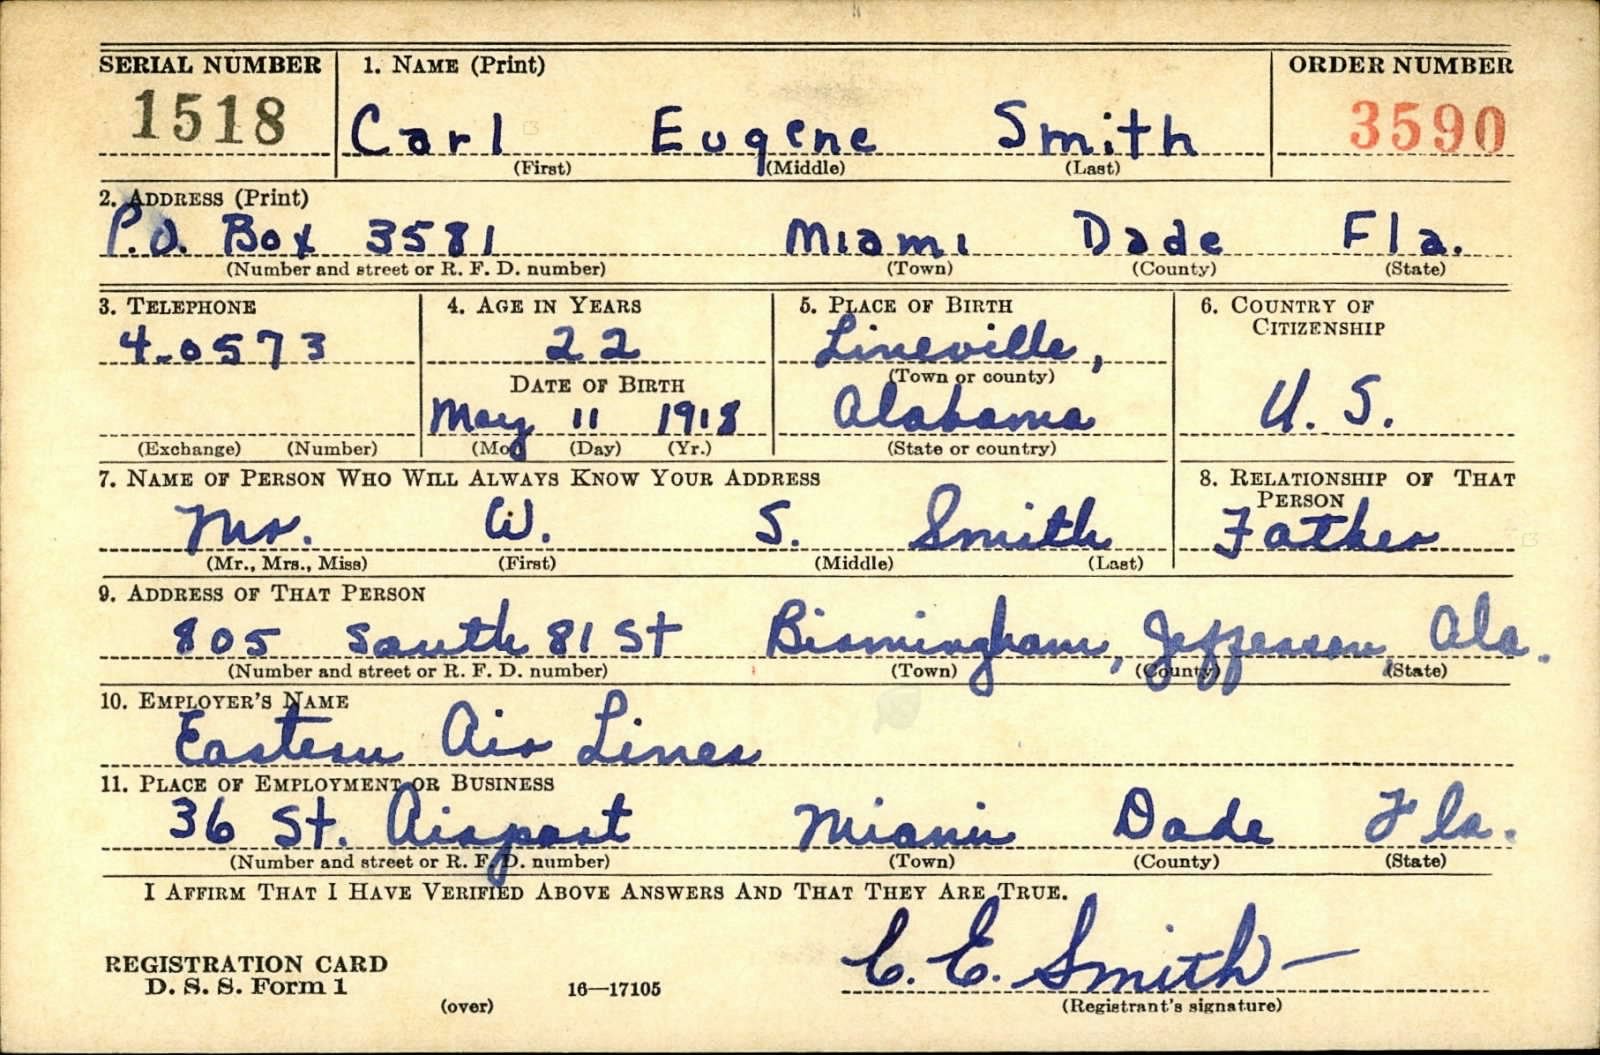 SERIAL NUMBER 1. NAME (Print) ORDER NUMBER
1518 Carl Eugene Smith 3590
(First) (Middle) (Last)
2. ADDRESS (Print)
P.O. Box 3581 Miami Dade Fla.
(Number and street or R. F. D. number) (Town) (County) (State)
3. TELEPHONE 4. AGE IN YEARS 5. PLACE OF BIRTH 6. COUNTRY OF
CITIZENSHIP
4-0573 22 Lineville,
(Town or county)
DATE OF BIRTH
May 11 1918 Alabama U. S.
(Exchange) (Number) (Mo.) (Day) (Yr.) (State or country)
7. NAME OF PERSON WHO WILL ALWAYS KNOW YOUR ADDRESS 8. RELATIONSHIP OF THAT
PERSON
Mr. W. S. Smith Father
(Mr., Mrs., Miss) (First) (Middle) (Last)
9. ADDRESS OF THAT PERSON
805 South 81 St Birmingham, Jefferson, Ala.
(Number and street or R. F. D. number) (Town) (County) (State)
10. EMPLOYER'S NAME
Eastern Air Lines
11. PLACE OF EMPLOYMENT OR BUSINESS
36 St. Airport Miami Dade Fla.
(Number and street or R. F. D. number) (Town) (County) (State)
I AFFIRM THAT I HAVE VERIFIED ABOVE ANSWERS AND THAT THEY ARE TRUE.
C. E. Smith
REGISTRATION CARD
D. S. S. Form 1
(over) 16—17105 (Registrant's signature)